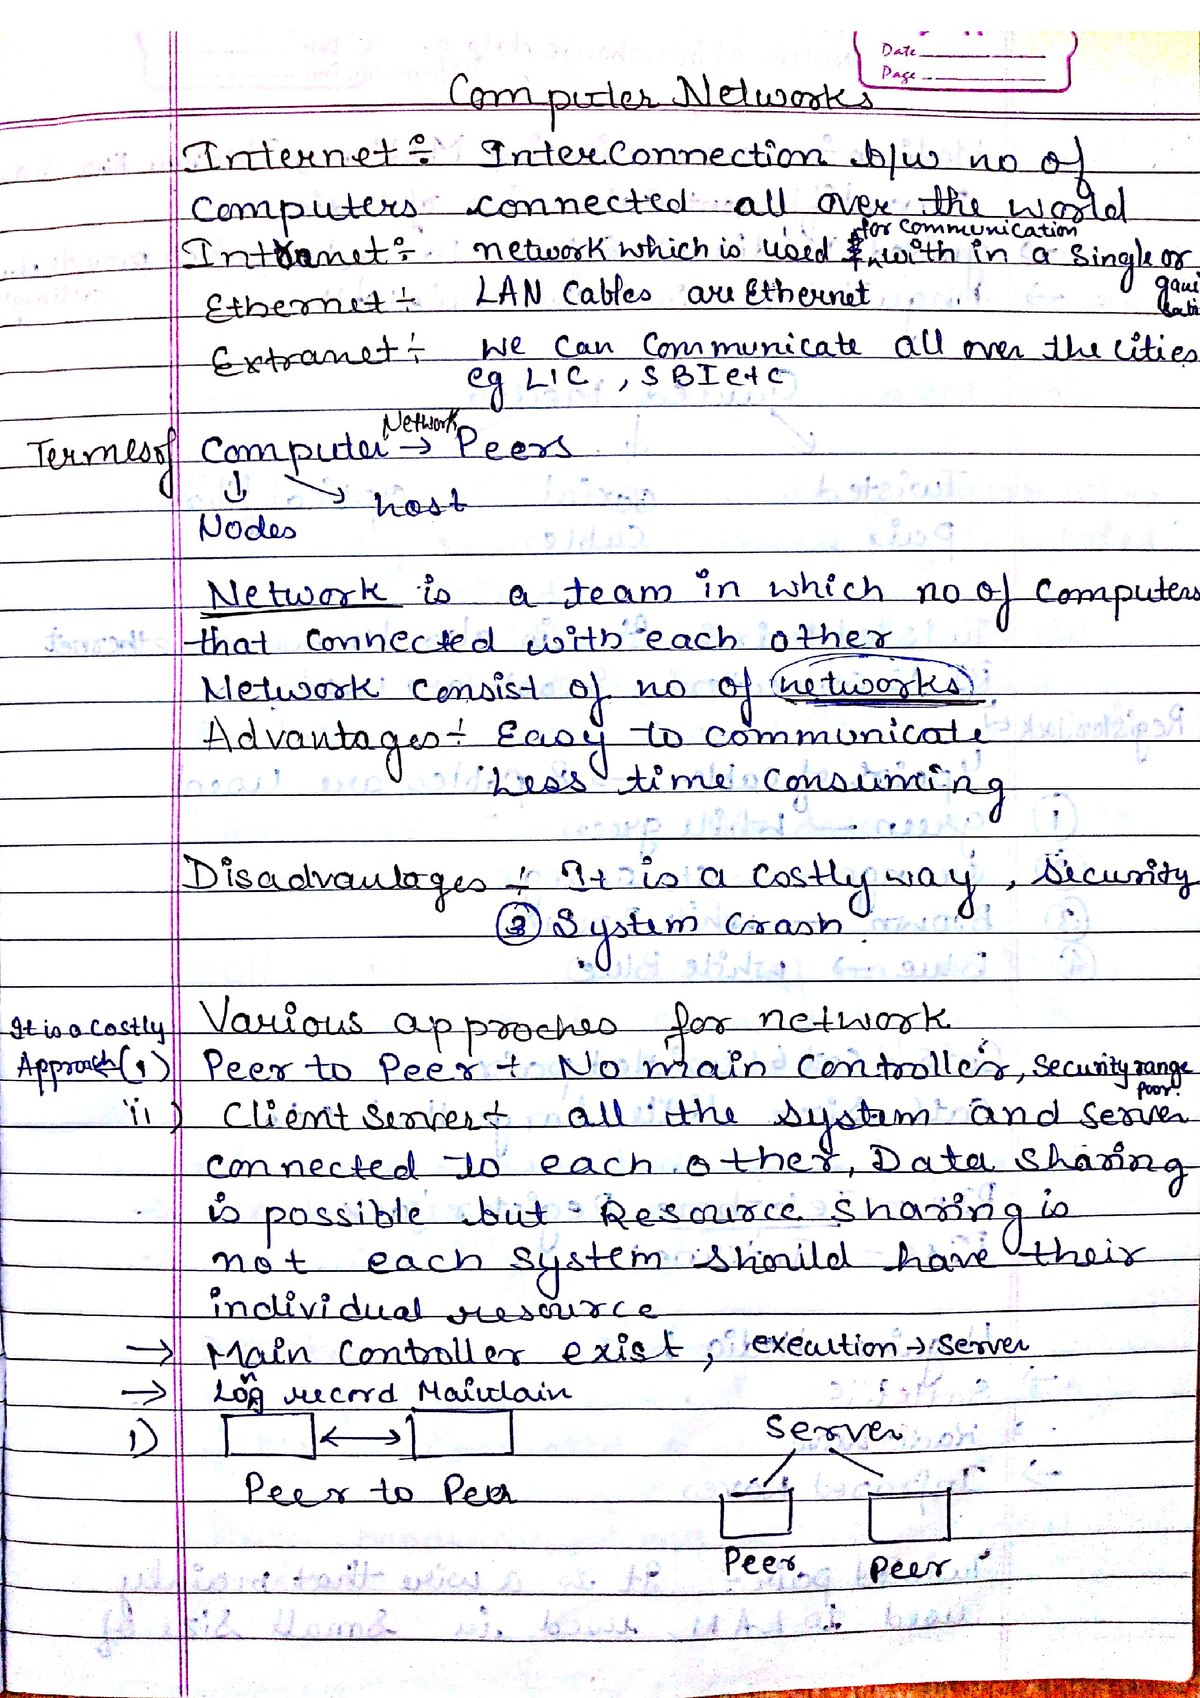 Date
Page
Computer Networks
Internet÷ InterConnection b/w no of
Computers connected all over the world
for communication
Intranet÷ network which is used with in a Single or
Ethernet÷ LAN Cables are Ethernet
Extranet÷ We Can Communicate all over the cities
eg LIC, SBI etc
Network
Termes of Computer → Peers
host
Nodes
Network is a team in which no of Computers
that Connected with each other
Network consist of no of networks
Advantages÷ Easy to communicate
Less time consuming
Disadvantages÷ It is a costly way, Security
③ System Crash
It is a costly Various approches for network
Approach (i) Peer to Peer÷ No main Controller, Security range
poor.
ii) Client Server÷ all the system and Server
connected to each other, Data sharing
is possible but Resource Sharing is
not each system should have their
individual resource
→ Main Controller exist, execution → Server
→ Record Maintain
1) Server
Peer to Peer
Peer Peer